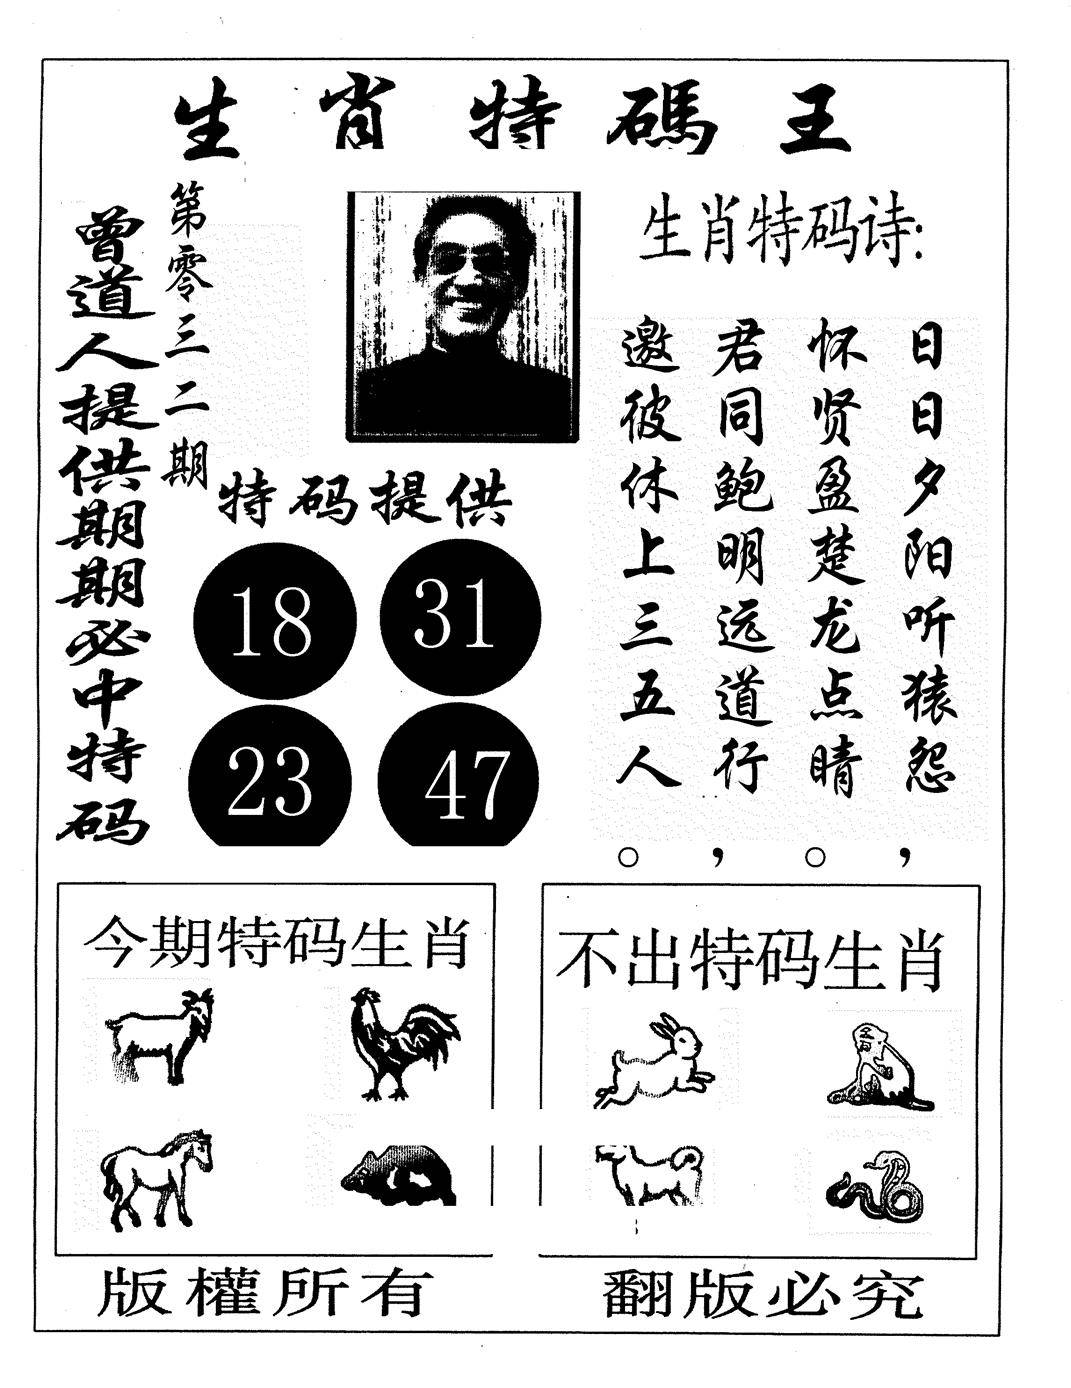 生肖特碼王
曾道人提供期期必中特码
第零三二期
特码提供
18 31
23 47
生肖特码诗:
日日夕阳听猿怨，
怀贤盈楚龙点睛。
君同鲍明远道行，
邀彼休上三五人。
今期特码生肖
不出特码生肖
版權所有
翻版必究